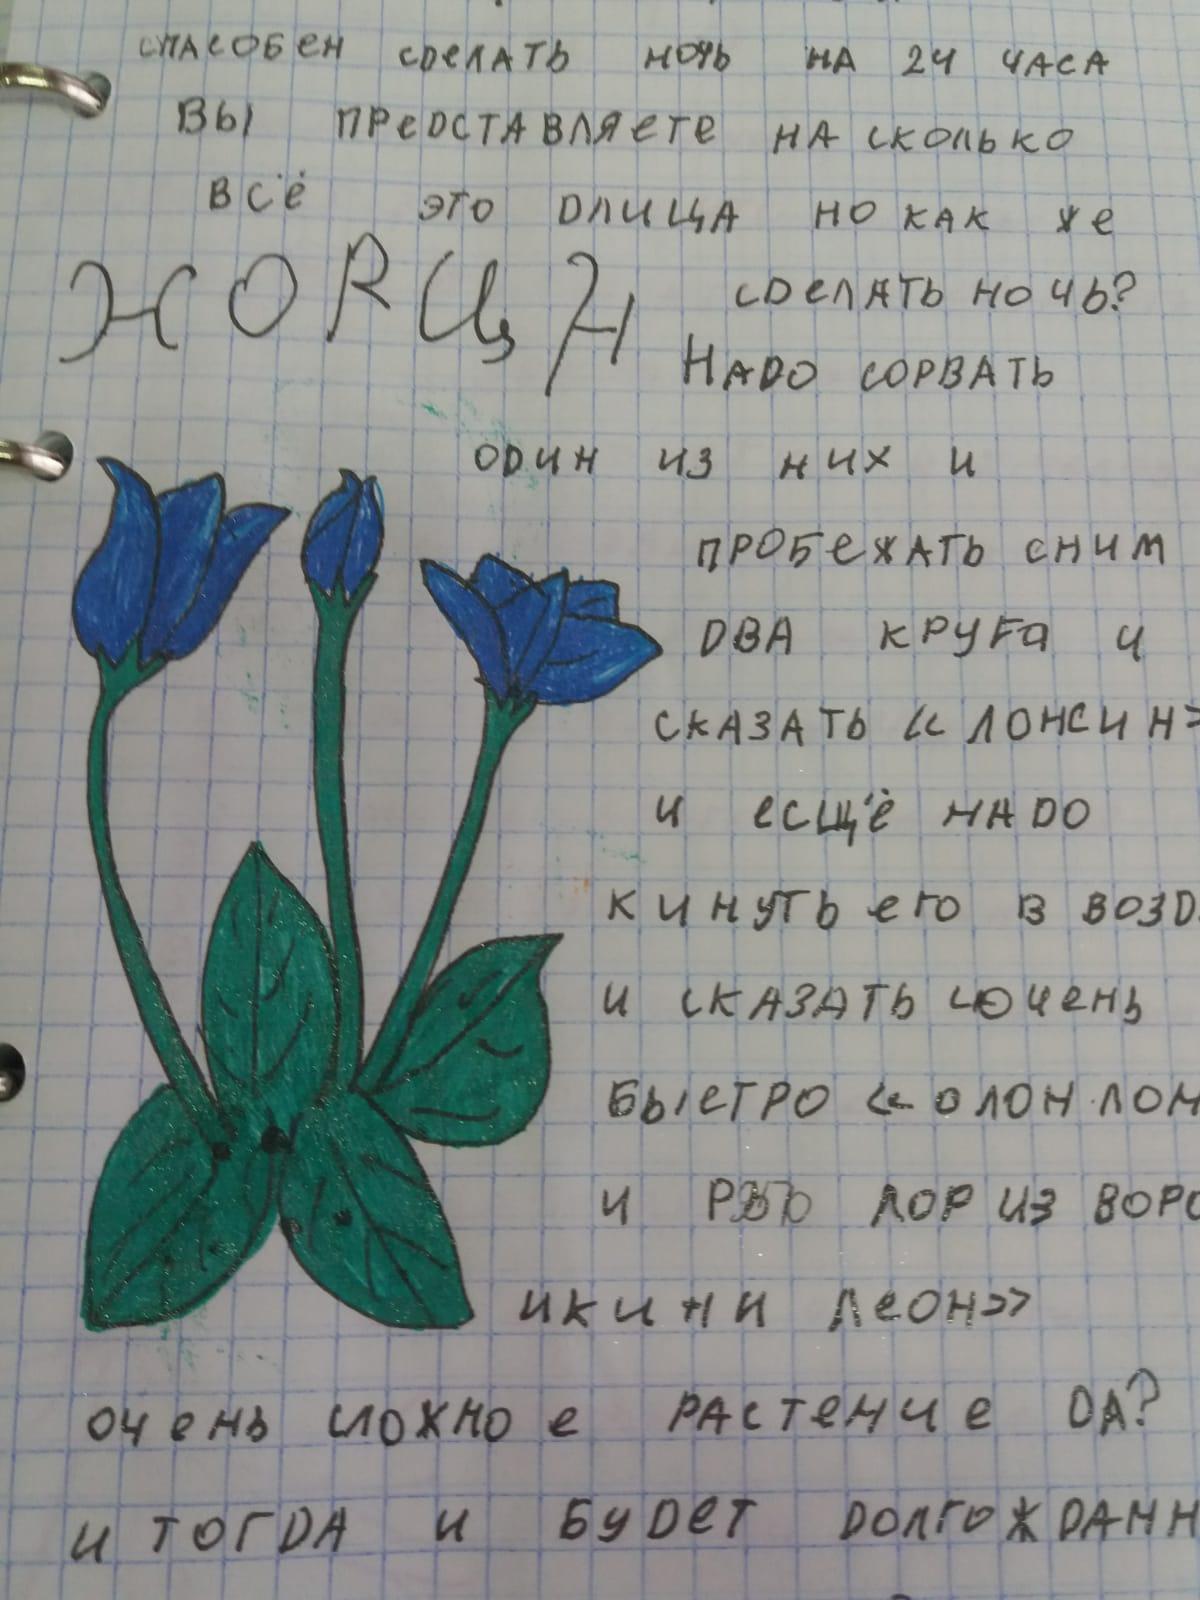 спасобен сделать ночь на 24 часа
вы представляете на сколько
всё это длица но как же
сделать ночь?
Надо сорвать
один из них и
пробежать сним
два круга и
сказать «лонсин»
и есщё надо
кинуть его в
и сказать очень
быстро «олон лон
и лор из
икини леон»
очень сложное растение да?
и тогда и будет